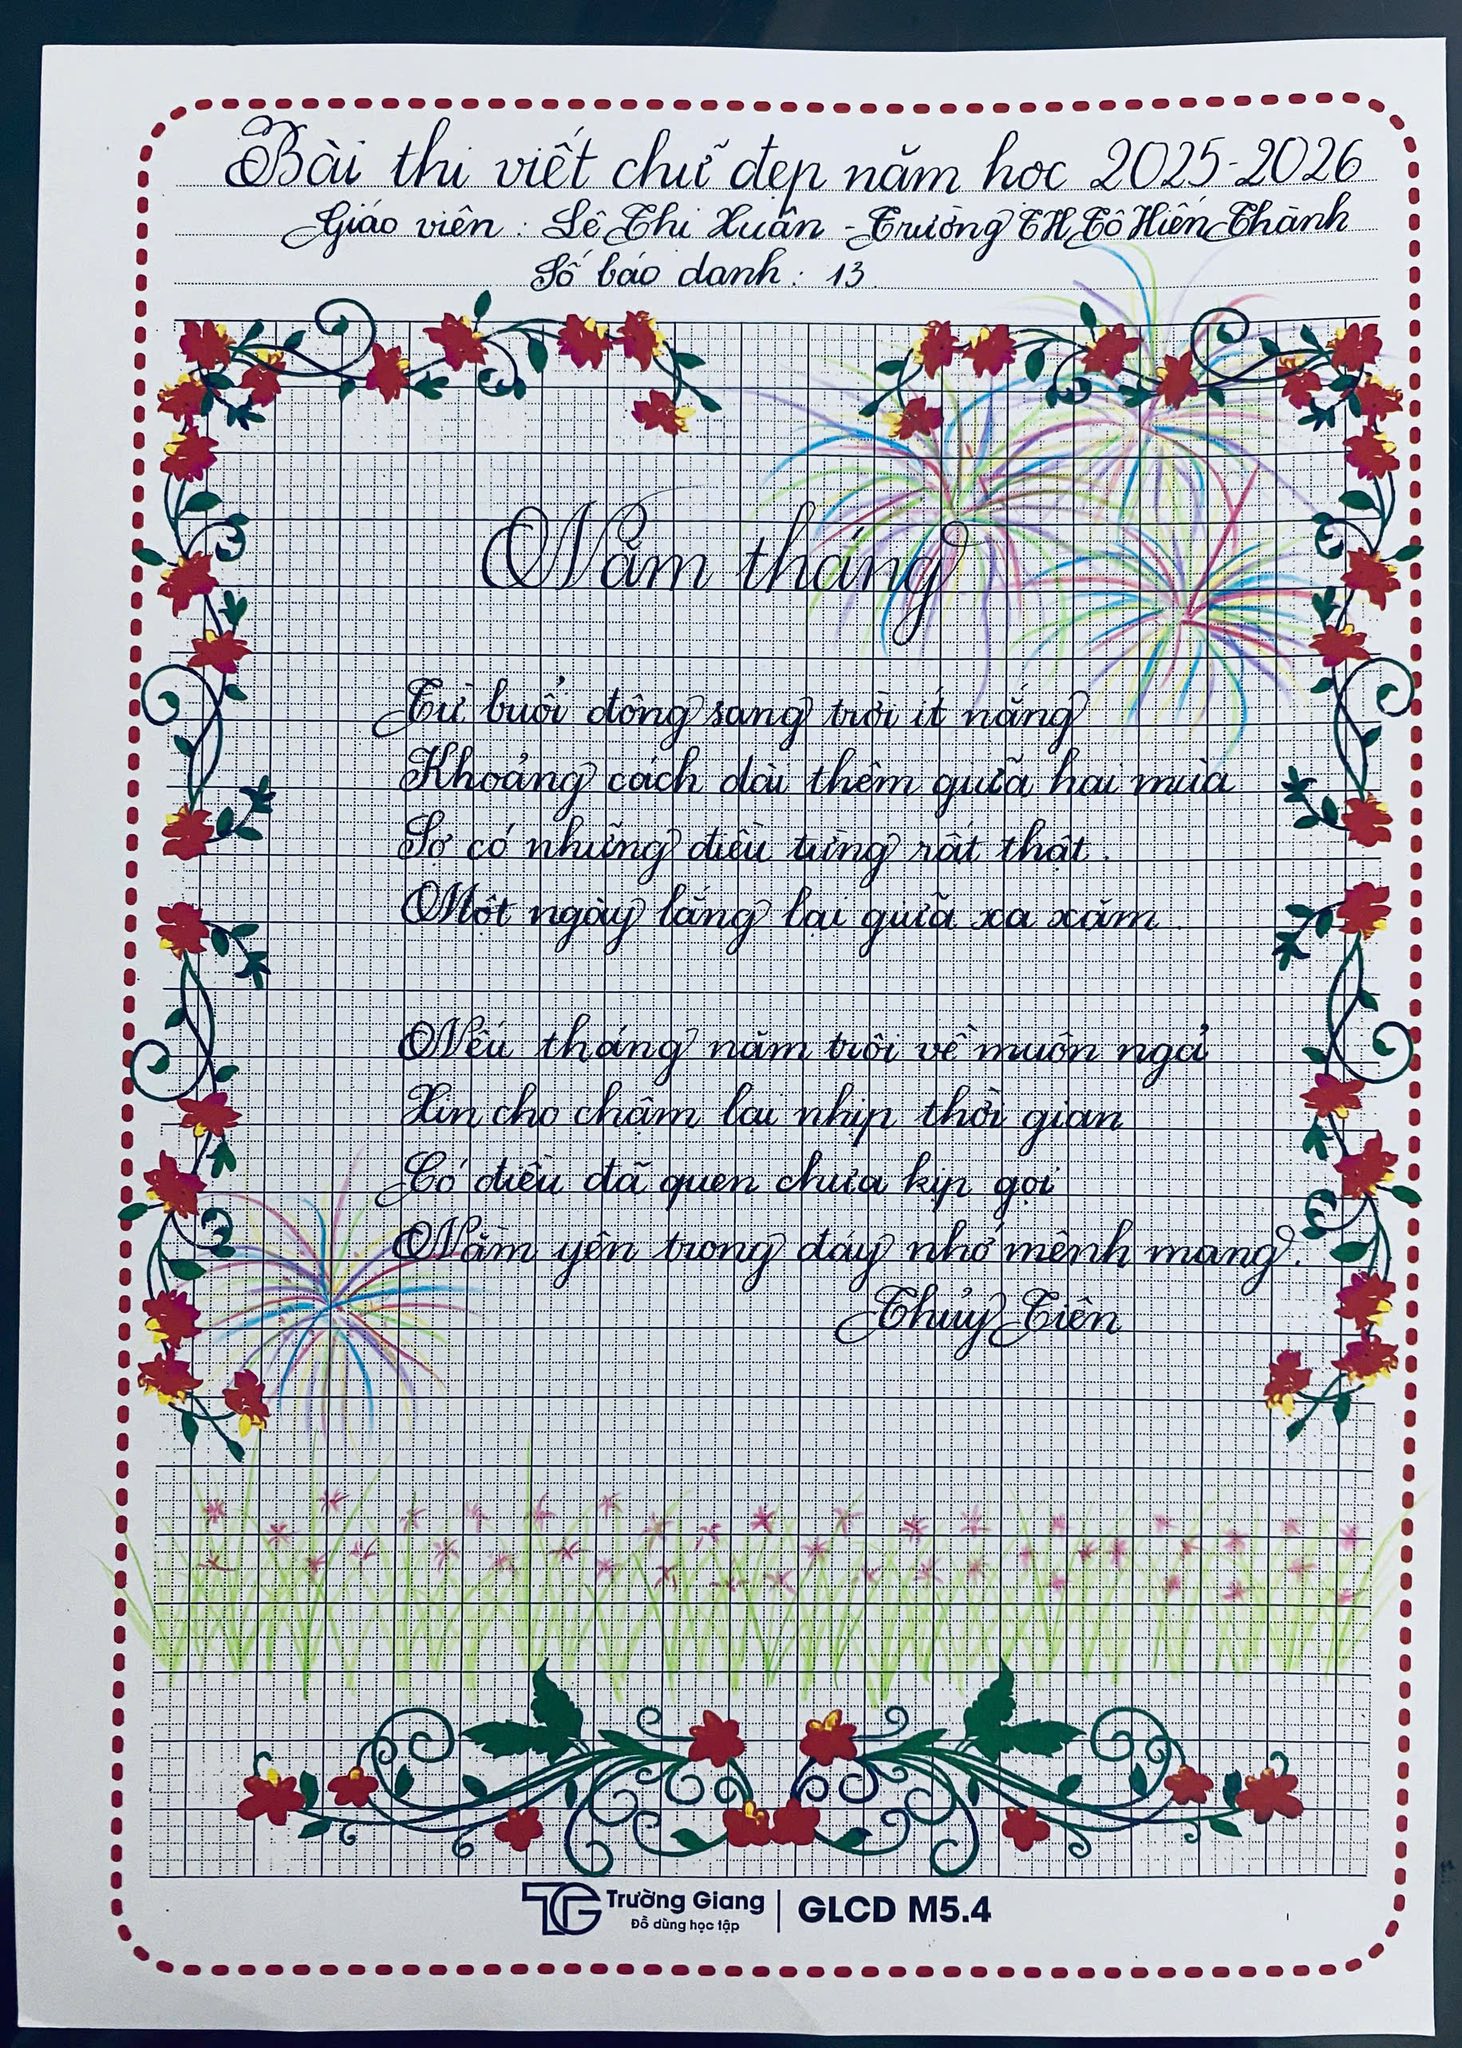 Bài thi viết chữ đẹp năm học 2025-2026
Giáo viên: Lê Thị Xuân - Trường TH Tô Hiến Thành
Số báo danh: 13
Năm tháng
Từ buổi đông sang trời ít nắng
Khoảng cách dài thêm giữa hai mùa
Sợ có những điều từng rất thật.
Một ngày lắng lại giữa xa xăm.
Nếu tháng năm trôi về muôn ngả
Xin cho chậm lại nhịp thời gian
Có điều đã quen chưa kịp gọi
Nằm yên trong đáy nhớ mênh mang.
Thủy Tiên
TG Trường Giang | GLCD M5.4
Đồ dùng học tập